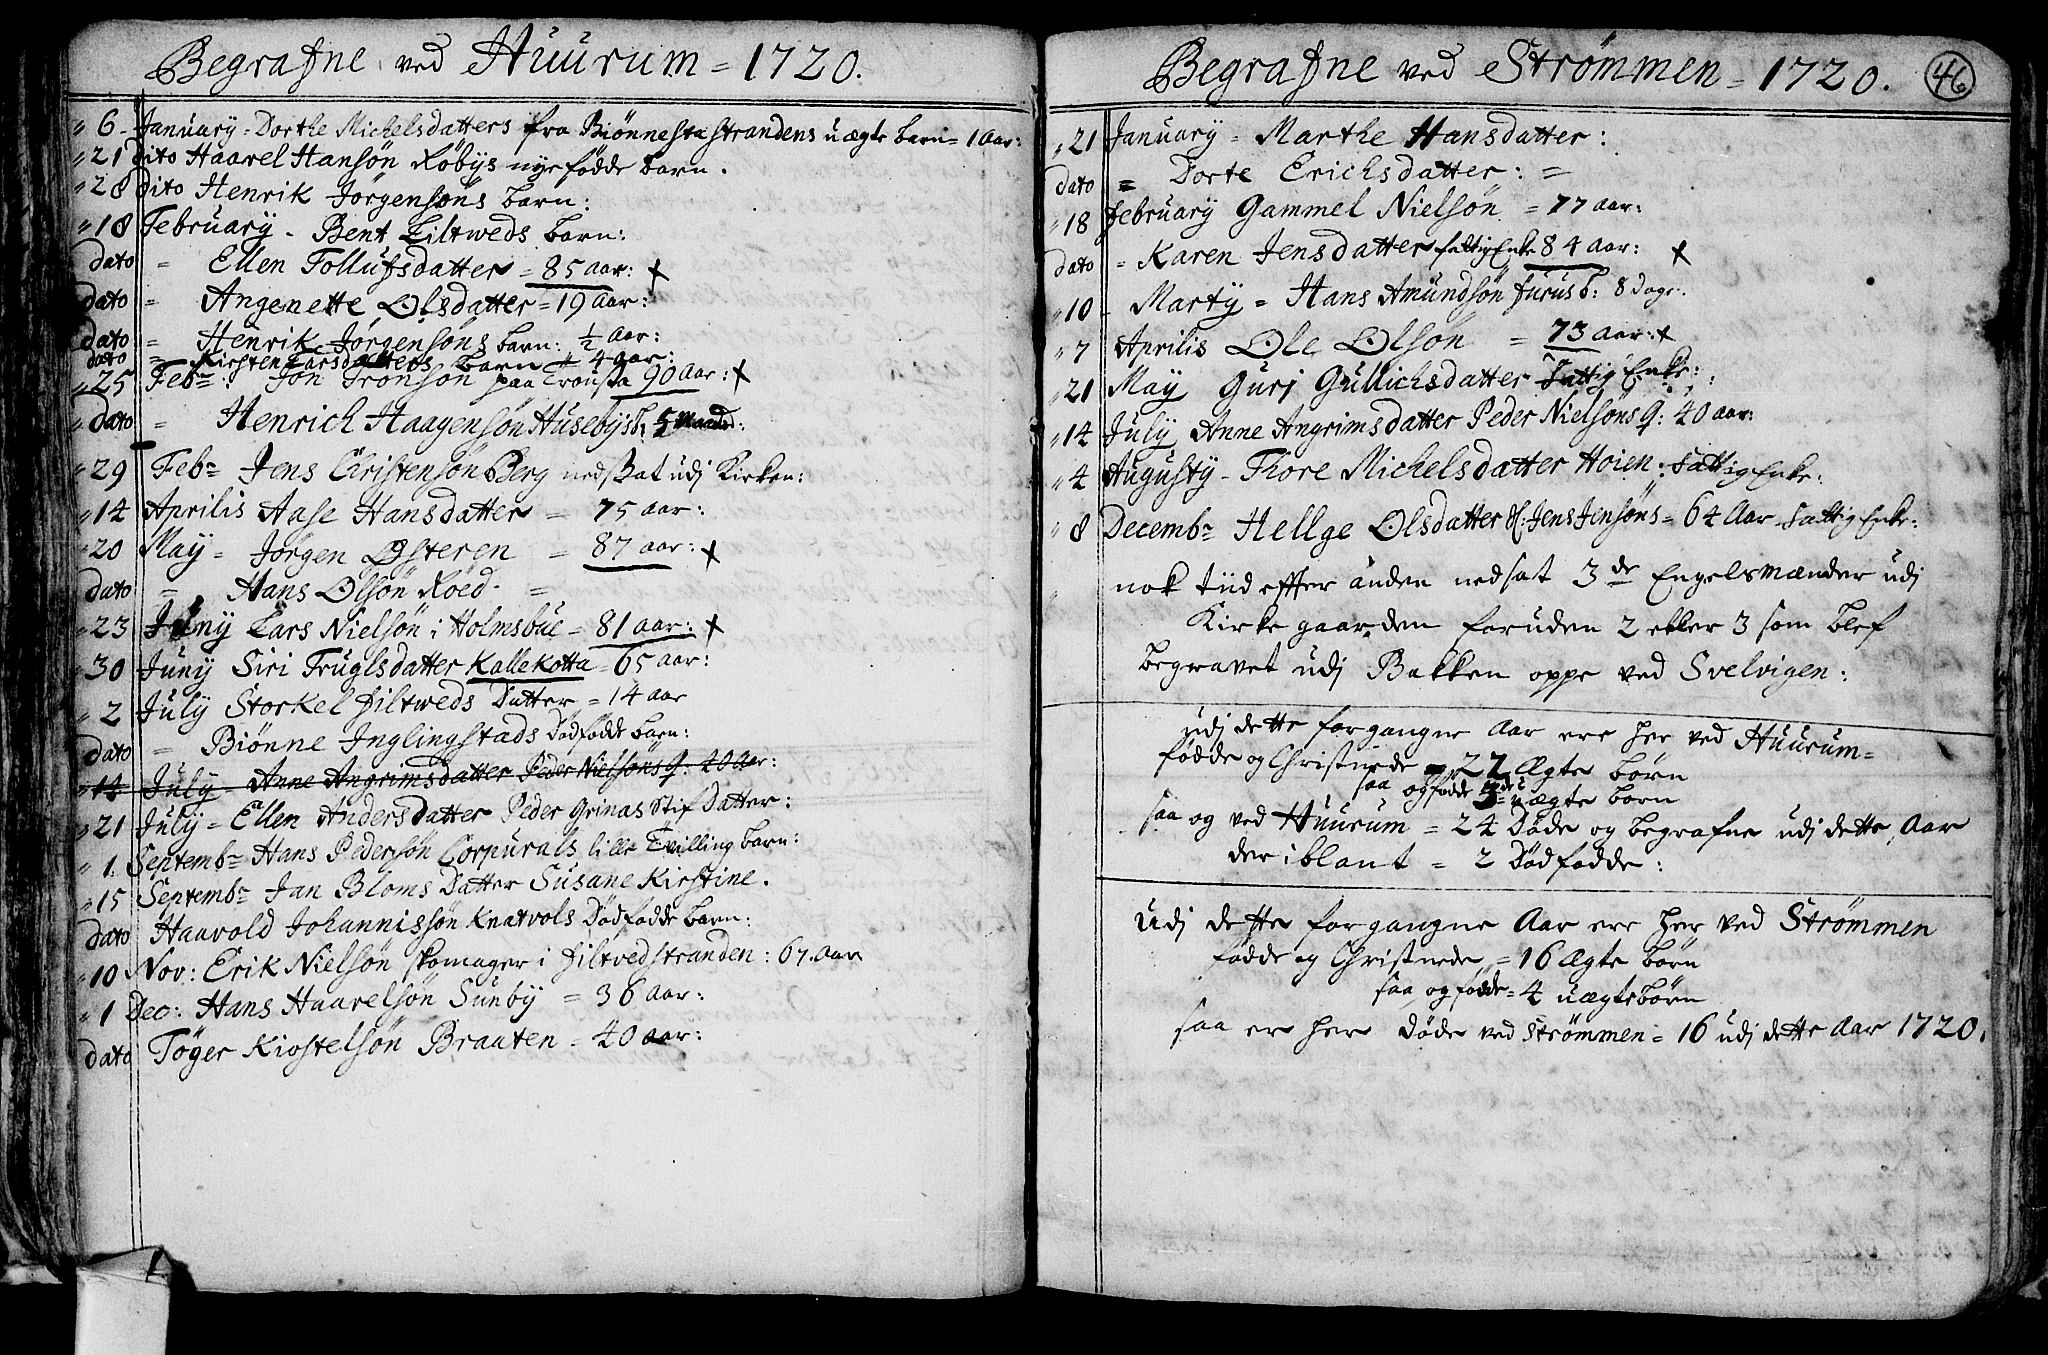 Begrafne ved Huurum = 1720.
" 6 - January - Dorthe Michelsdatters fra Biønnestastrandens uægte barn = 1 Aar:
" 21 dito Haarel Hansøn Røbys nyefødde barn.
" 28 dito Henrik Jørgensøns barn:
" 18 February - Bent Tiltweds barn:
dato = Ellen Tollufsdatter = 85 aar: x
dato = Angenette Olsdatter = 19 Aar:
dato = Henrik Jørgensøns barn: ½ Aar:
dato = Kirsten Larsdatters barn 4 aar:
" 25 Feb: Jon Tronsøn paa 90 Aar: x
" dato = Henrich Haagensøn Husebys b. 5 Maaned:
" 29 Feb Jens Christensøn Berg nedsat udj Kirken:
" 14 Aprilis Aase Hansdatter = 75 aar:
" 20 May = Jørgen Østeren = 87 aar: x
dato = Hans Olsøn Roed =
" 23 Juny Lars Nielsøn i Holmsbue = 81 aar: x
" 30 Juny Siri Truglsdatter Kallekotta = 65 aar:
" 2 July Storkel Filtweds Datter = 14 aar
dato = Biønne Inglingstads Dødfødde barn:
" 14 July - Anne Angrimsdatter Peder Nielsøns q: 40 Aar:
" 21 July = Ellen Andersdatter Peder Grinas Stif Datter:
" 1. Septemb Hans Pedersøn Corpurals lille Tvilling barn:
" 15 Septemb Jan Bloms Datter Susane Kirstine.
dato Haavold Johannissøn Knatvols Dødfødde barn:
" 10 Nov: Erik Nielsøn skomager i Filtvedstranden: 67. Aar
" 1 Dec: Hans Haarelsøn Sunby = 36 Aar:
dato Tøger Kiostelsøn Brauten = 40 aar:
Begrafne ved Strømmen = 1720. 46
" 21 January = Marthe Hansdatter:
dato = Dorte Erichsdatter: =
" 18 February Gammel Nielsøn = 77 aar:
dato = Karen Jensdatter fattig Enke 84 Aar: x
" 10 - Marty = Hans Amundsøn Furus b: 8 Dage.
" 7 Aprilis Ole Olsøn = 73 aar: x
" 21 May Gurj Gullichsdatter fattig Enke:
" 14 July Anne Angrimsdatter Peder Nielsøns q: 40 aar:
" 4 Augusty - Thore Michelsdatter Høien: fattig Enke:
" 8 Decemb Hellge Olsdatter Jens Jensøns = 64 Aar fattig Enke:
nok tiid effter anden nedsat 3de Engelsmænder udj
Kirkegaarden foruden 2 eller 3 som blef
begravet udj Bakken oppe ved Svelvigen:
udj dette forgangne Aar ere her ved Huurum =
fødde og Christnede = 22 Ægte børn
saa og fødde 3 = uægte børn
saa og ved Huurum = 24 Døde og begrafne udj dette Aar
der iblant = 2 Dødfødde:
Udj dette forgangne Aar ere her ved Strømmen
fødde og Christnede = 16 Ægte børn
saa og fødde = 4 uægtebørn
saa er her Døde ved Strømmen = 16 udj dette Aar 1720.